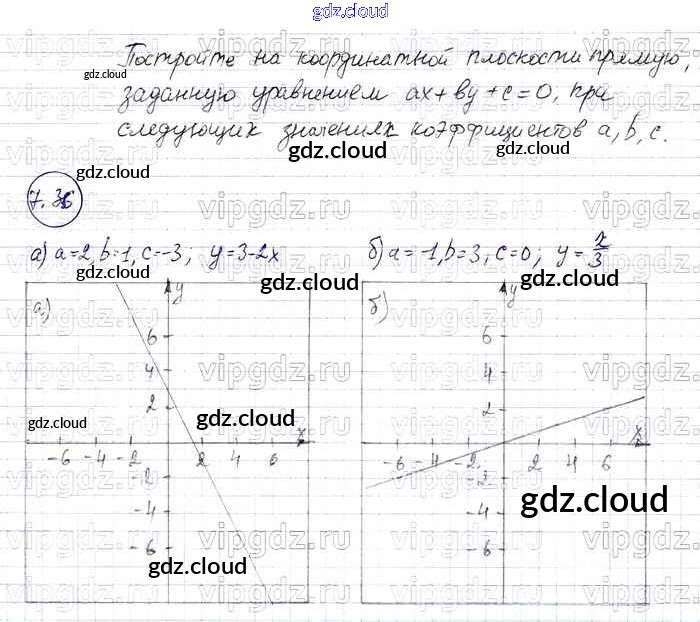 gdz.cloud
Постройте на координатной плоскости прямую,
gdz.cloud
заданную уравнением ax+by+c=0, при
следующих значениях коэффициентов a, b, c.
gdz.cloud gdz.cloud
vipgdz.ru vipgdz.ru vipgdz.ru vipgdz.ru
7.36
gdz.cloud
а) a=2, b=1, c=-3; y=3-2x б) a=-1, b=3, c=0; y=x/3
gdz.cloud gdz.cloud gdz.cloud
а) y б) y
6 6
4 4
2 2
gdz.cloud gdz.cloud
x x
-6 -4 -2 2 4 6 -6 -4 -2 2 4 6
-2 -2
gdz.cloud
-4 -4
-6 -6
gdz.cloud